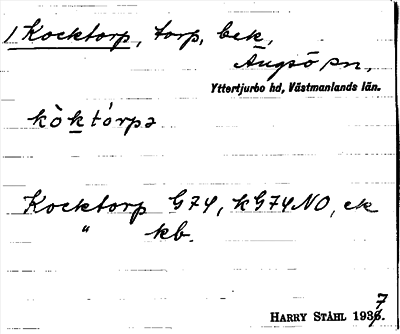 1 Kocktorp, torp, bek,
Ängsö sn,
Yttertjurbo hd, Västmanlands län.
kòktórpə
Kocktorp G74, kG74NO, ek
" kb.
HARRY STÅHL 1937.